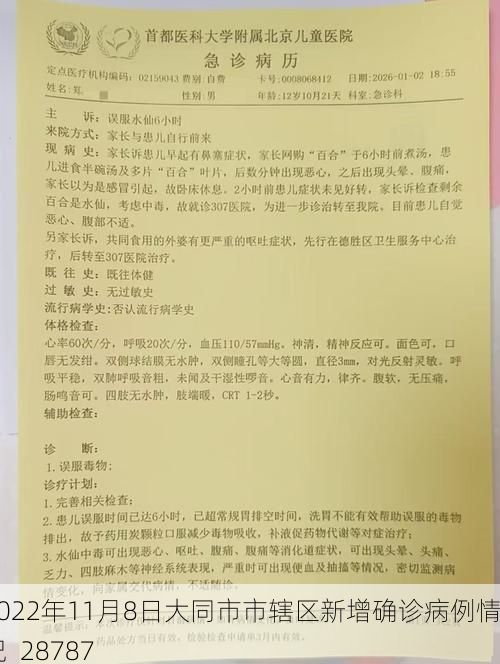 首都医科大学附属北京儿童医院
急诊病历
定点医疗机构编码: 02159043 费别:自费 卡号:0008068412 日期:2026-01-02 18:55
姓名:郑 性别:男 年龄:12岁10月21天 科室:急诊科
主 诉: 误服水仙6小时
来院方式: 家长与患儿自行前来
现 病 史: 家长诉患儿早起有鼻塞症状, 家长网购“百合”于6小时前煮汤, 患
儿进食半碗汤及多片“百合”叶片, 后数分钟出现恶心, 之后出现头晕、腹痛,
家长以为是感冒引起, 故卧床休息。2小时前患儿症状未见好转, 家长诉检查剩余
百合是水仙, 考虑中毒, 故就诊307医院, 为进一步诊治转至我院。目前患儿自觉
恶心、腹部不适。
另家长诉, 共同食用的外婆有更严重的呕吐症状, 先行在德胜区卫生服务中心治
疗, 后转至307医院治疗。
既 往 史: 既往体健
过 敏 史: 无过敏史
流行病学史:否认流行病学史
体格检查:
心率60次/分, 呼吸20次/分, 血压110/57mmHg。神清, 精神反应可。面色可。口
唇无发绀。双侧球结膜无水肿, 双侧瞳孔等大等圆, 直径3mm, 对光反射灵敏。呼
吸平稳, 双肺呼吸音粗, 未闻及干湿性啰音。心音有力, 律齐。腹软, 无压痛,
肠鸣音可。四肢无水肿, 肢端暖, CRT 1-2秒。
辅助检查:
诊 断:
1.误服毒物;
诊疗计划:
1.完善相关检查;
2.患儿误服时间已达6小时, 已超常规胃排空时间, 洗胃不能有效帮助误服的毒物
排出, 故予药用炭颗粒口服减少毒物吸收, 补液促药物代谢等对症治疗;
3.水仙中毒可出现恶心、呕吐、腹痛、腹痛等消化道症状, 可出现头晕、头痛、
乏力、四肢麻木等神经系统表现, 严重时可出现便血及抽搐等情况, 密切监测病
情变化, 向家属交代病情, 不适随诊。
022年11月8日大同市市辖区新增确诊病例情
28787
药品处方当日有效, 检验检查申请单3月内有效。